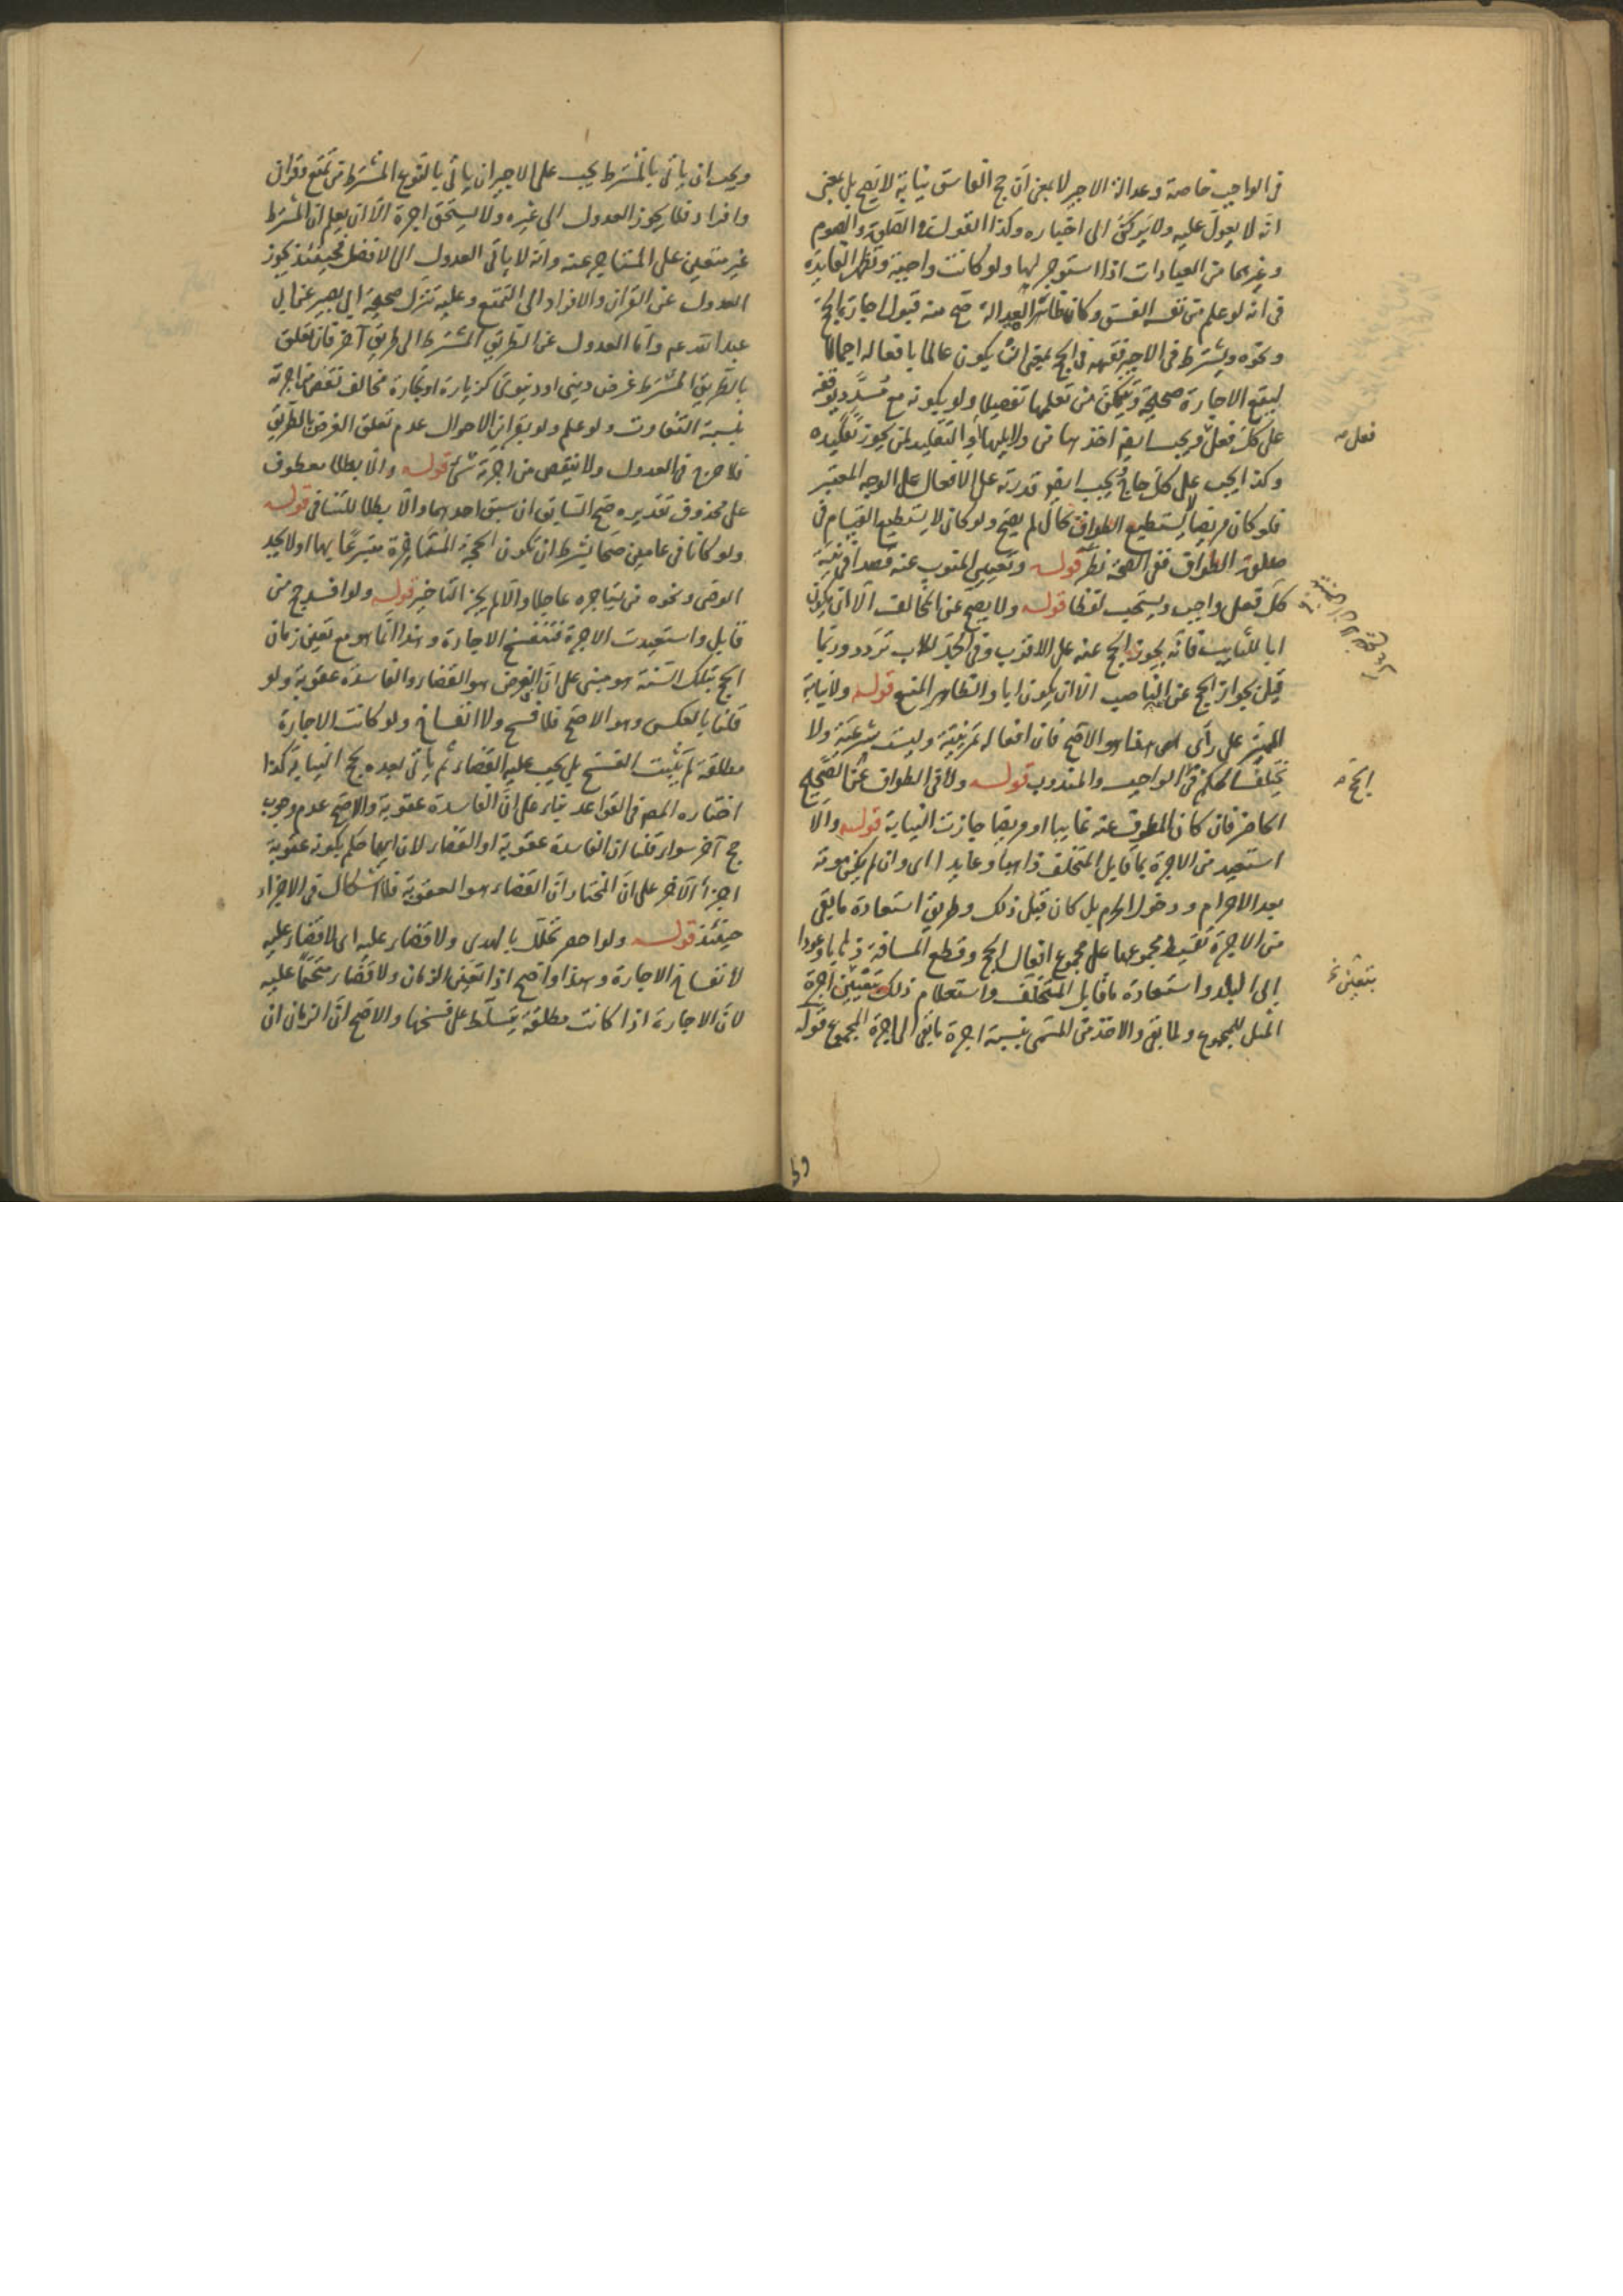 في الواجب خاصة وعدالة الاجير لا بمعنى ان حج الفاسق نيابة لا يصح بل بمعنى
انه لا يعول عليه ولا يركن الى اخباره وكذا القول في الصلوة والصوم
وغيرهما من العبادات اذا استوجر لها ولو كانت واجبة وتظهر الفايدة
في انه لو علم من نفسه الفسق وكان ظاهر العدالة صح منه قبول اجارة الحج
ونحوه ويشترط في الاجير تفقهه في الحج بمعنى ان يكون عالما بافعاله اجمالا
ليقع الاجارة صحيحة ويتمكن من تعلمها تفصيلا ولو بكونه مع مسدد يوقفه
على كل فعل ويجب ايضا اخذها من دلايلها او التقليد لمن يجوز تقليده
فعل
وكذا يجب على كل حاج ويجب ايضا قدرته على الافعال على الوجه المعتبر
فلو كان مريضا لا يستطيع الطواف كالا لم يصح ولو كان لا يستطيع القيام في
صلوة الطواف ففي الصحة نظر قوله وتعيين المنوب عنه قصدا في نية
كل فعل واجب ويستحب لفظا قوله ولا يصح عن المخالف الا ان يكون
ابا للنايب فانه يجوز الحج عنه على الاقرب وفي الجد للاب تردد وربما
قيل بجواز الحج عن الناصب الا ان يكون ابا والظاهر المنع قوله ولا نيابة
المميز على رأي هذا هو الاصح فان افعاله تمرينية وليست شرعية ولا
يختلف الحكم في الواجب والمندوب قوله ولا في الطواف عن الصحيح
الحج
الحاضر فان كان المطوف عنه غايبا او مريضا جازت النيابة قوله والا
استعيد من الاجرة بما قابل المتخلف ذاهبا وعايدا اى وان لم يكن موته
بعد الاحرام ودخول الحرم بل كان قبل ذلك وطريق استعادة ما بقي
من الاجرة تقسيط مجموعها على مجموع افعال الحج وقطع المسافة ذهابا وعودا
الى البلد واستعادة ما قابل المتخلف واستعلام ذلك بتقيين اجرة
بتعيين
المثل للمجموع ولما بقي والاخذ من المسمى بنسبة اجرة ما بقي الى اجرة المجموع قوله
ويجب ان ياتي بالمشترط يجب على الاجير ان ياتي بالنوع المشترط من تمتع وقران
وافراد فلا يجوز العدول الى غيره ولا يستحق اجرة الا ان يعلم ان المشترط
غير متعين على المستاجر عنه وانه لا يابى العدول الى الافضل فحينئذ يجوز
العدول عن القران والافراد الى التمتع وعليه تنزل صحيحة ابي بصير عن ابي
عبد الله عم واما العدول عن الطريق المشترط الى طريق آخر فان تعلق
بالطريق المشترط غرض ديني او دنيوي كزيارة او تجارة فخالف نقص من اجرته
بنسبة التفاوت ولو علم ولو بقراين الاحوال عدم تعلق الغرض بالطريق
فلا حرج في العدول ولا ينقص من اجرته شئ قوله والا بطلا معطوف
على محذوف تقديره صح السابق ان سبق احدهما والا بطلا للتنافي قوله
ولو كانا في عامين صحا بشرط ان تكون الحجة المتاخرة متبرعا بها او لا يجد
الوصى ونحوه من يستاجره عاجلا والا لم يجز التاخير قوله ولو افسد حج من
قابل واستعيدت الاجرة فتنفسخ الاجارة وهذا انما هو مع تعين زمان
الحج بتلك السنة هو مبنى على ان الفرض هو القضاء والفاسدة عقوبة ولو
قلنا بالعكس وهو الاصح فلا فسخ ولا انفساخ ولو كانت الاجارة
مطلقة لم يثبت الفسخ بل يجب عليه القضاء ثم ياتي بعده بحج النيابة كذا
اختاره المصر في القواعد بناء على ان الفاسدة عقوبة والاصح عدم وجوب
حج آخر سواء قلنا ان الفاسدة عقوبة او القضاء لان ايهما حكم بكونه عقوبة
اجزأ الآخر على ان المختار ان القضاء هو العقوبة فلا اشكال في الاجزاء
حينئذ قوله ولو احصر تحلل بالهدى ولا قضاء عليه اى لا قضاء عليه
لانفساخ الاجارة وهذا واضح اذا تعين الزمان ولا قضاء متحتما عليه
لان الاجارة اذا كانت مطلقة يتسلط على فسخها والاصح ان الزمان ان